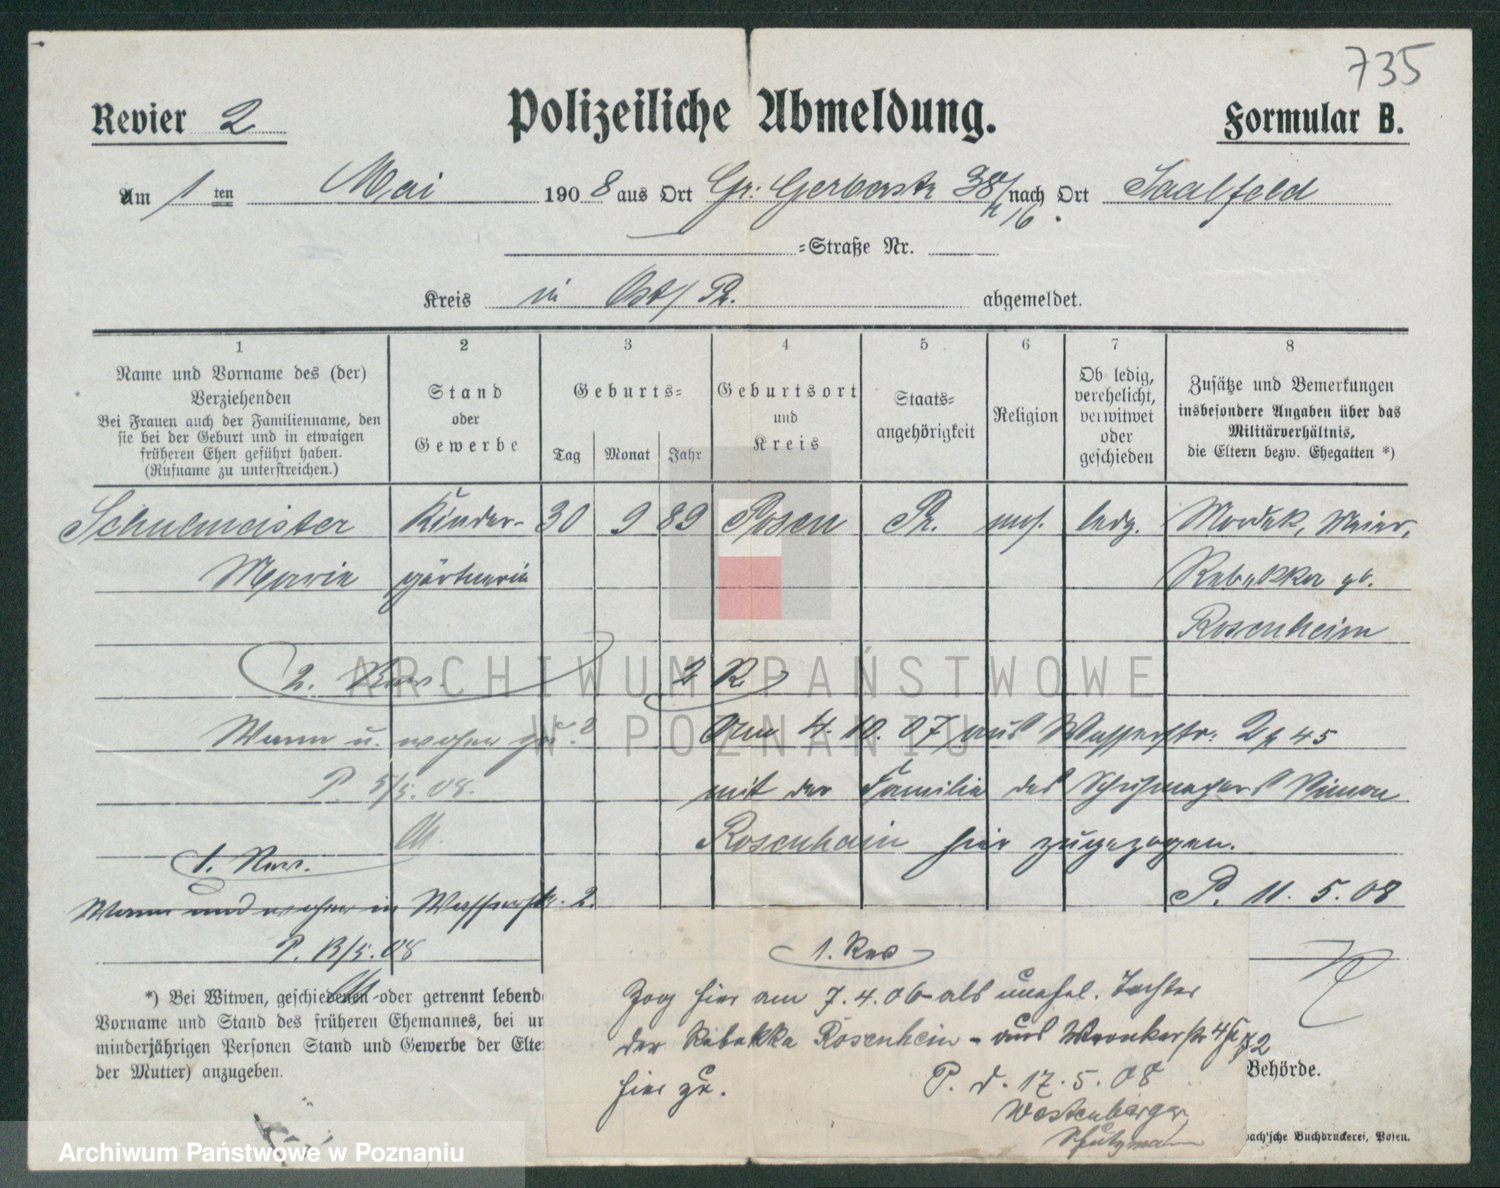 735
Revier 2
Polizeiliche Abmeldung.
Formular B.
Am 1 ten Mai 1908 aus Ort Gr. Gerberstr 38 nach Ort Saalfeld
=Straße Nr.
Kreis in Ost/Pr. abgemeldet.
1 2 3 4 5 6 7 8
Name und Vorname des (der)
Verziehenden
Bei Frauen auch der Familienname, den
sie bei der Geburt und in etwaigen
früheren Ehen geführt haben.
(Rufname zu unterstreichen.)
Stand
oder
Gewerbe
Geburts=
Tag Monat Jahr
Geburtsort
und
Kreis
Staats=
angehörigkeit
Religion
Ob ledig,
verehelicht,
verwitwet
oder
geschieden
Zusätze und Bemerkungen
insbesondere Angaben über das
Militärverhältnis,
die Eltern bezw. Ehegatten *)
Schulmeister Kinder- 30 9 89 Posen Pr. mos. ledg. Mordek, Meier,
Marie gärtnerin Rebekka gb.
Rosenheim
2. Rev. 2 R.
Wann u. woher zu? Am 4. 10. 07 aus Wasserstr. 2 45
P. 5/5. 08. mit der Familie des Schuhmachers Simon
Rosenhain hier zugezogen.
1. Rev.
P. 11. 5. 08
Wann und woher in Wasserstr. 2.
P. 13/5. 08
1. Rev
Zog hier am 7. 4. 06 als unehel. Tochter
der Rebekka Rosenhein - aus Wronkerstr 4
hier zu. P. d. 17. 5. 08
Westenberger
Schutzmann
*) Bei Witwen, geschiedenen oder getrennt lebend
Vorname und Stand des früheren Ehemannes, bei un
minderjährigen Personen Stand und Gewerbe der Elte
der Mutter) anzugeben.
Behörde.
bach'sche Buchdruckerei, Posen.
ARCHIWUM PAŃSTWOWE
W POZNANIU
Archiwum Państwowe w Poznaniu